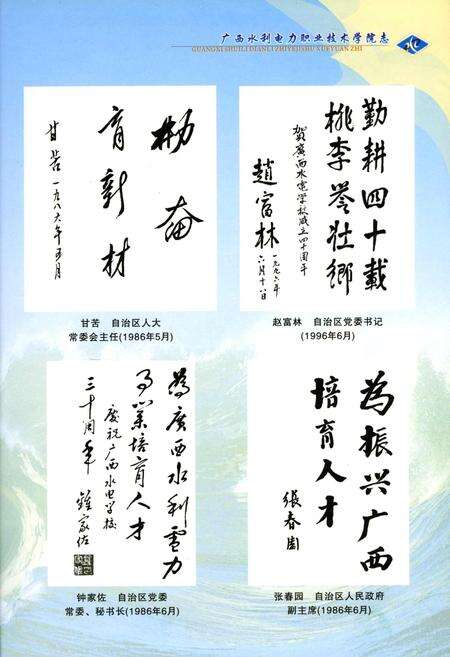 广西水利电力职业技术学院志
GUANGXI SHUILI DIANLI ZHIYE JISHU XUEYUAN ZHI
勤奋
育新材
甘苦一九八六年五月
甘苦 自治区人大
常委会主任(1986年5月)
勤耕四十载
桃李誉壮乡
贺广西水电学校成立四十周年
赵富林
一九九六年
六月十八日
赵富林 自治区党委书记
(1996年6月)
为广西水利电力
事业培育人才
庆祝广西水电学校
三十周年 钟家佐
钟家佐 自治区党委
常委、秘书长(1986年6月)
为振兴广西
培育人才
张春园
张春园 自治区人民政府
副主席(1986年6月)